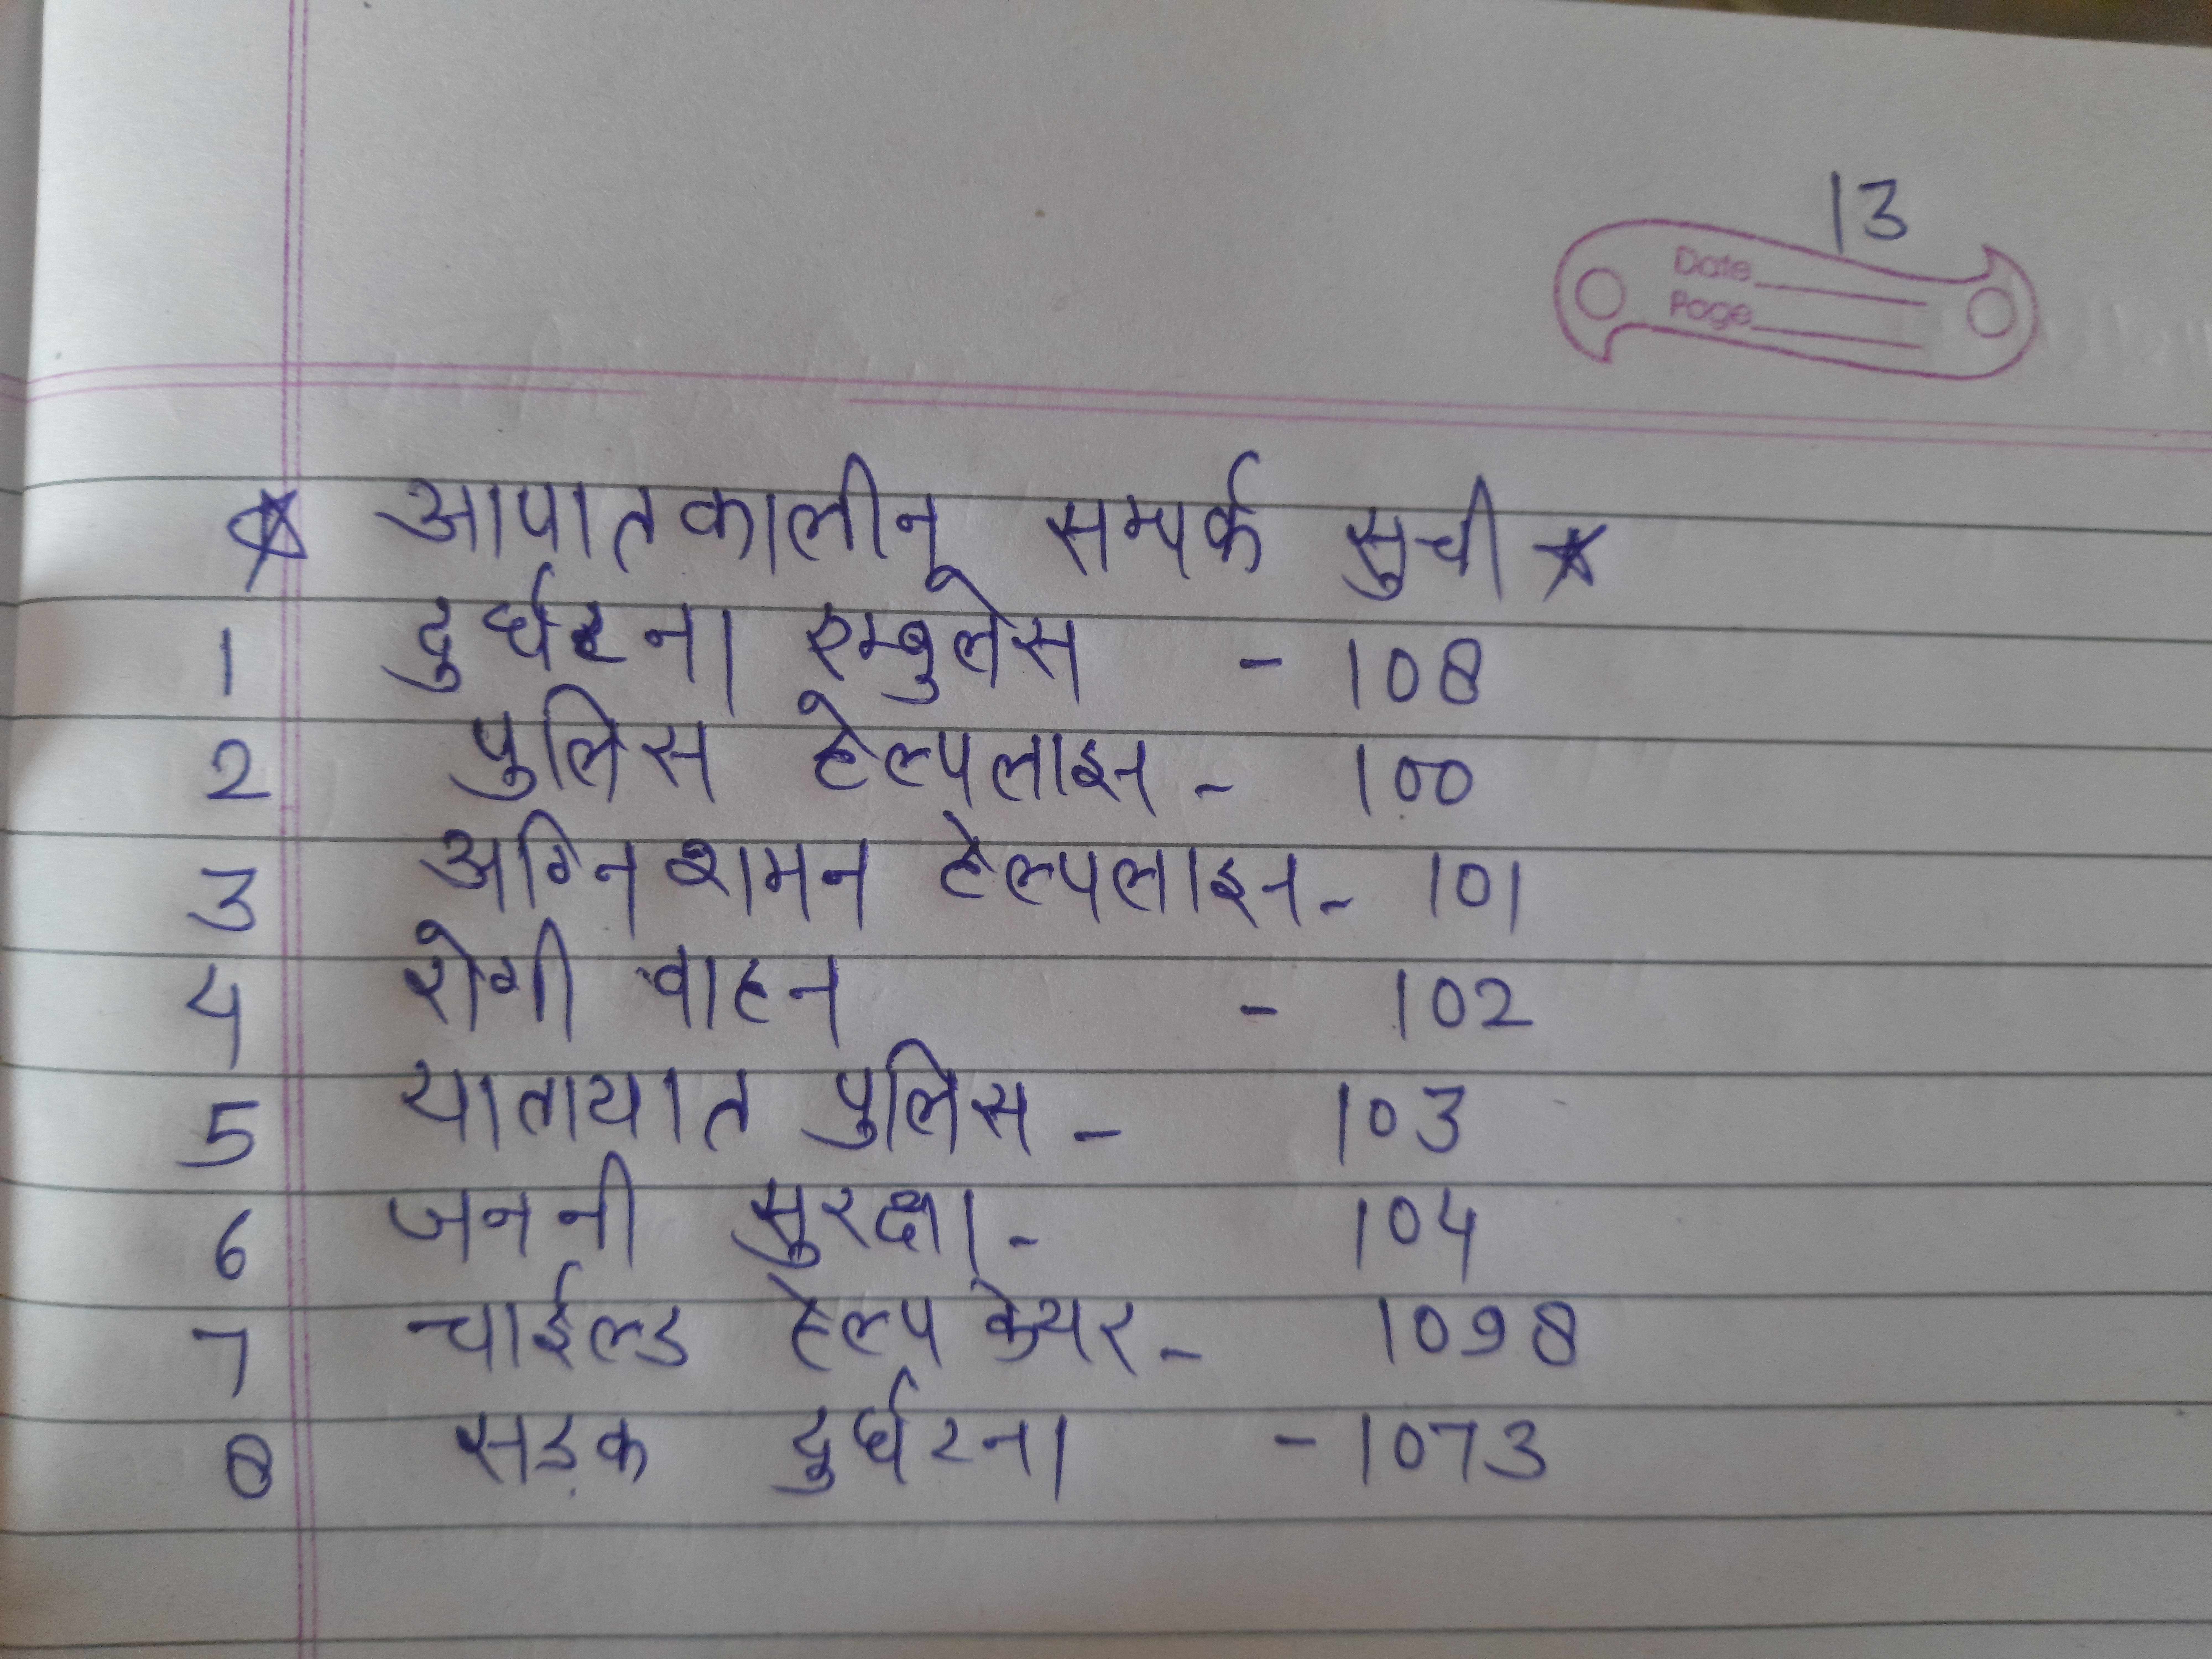 13
Date
Page
★ आपातकालीन सम्पर्क सुची ★
1 दुर्घटना एम्बुलेस - 108
2 पुलिस हेल्पलाइन - 100
3 अग्नि शमन हेल्पलाइन - 101
4 रोगी वाहन - 102
5 यातायात पुलिस - 103
6 जननी सुरक्षा - 104
7 चाईल्ड हेल्प केयर - 1098
8 सड़क दुर्घटना - 1073